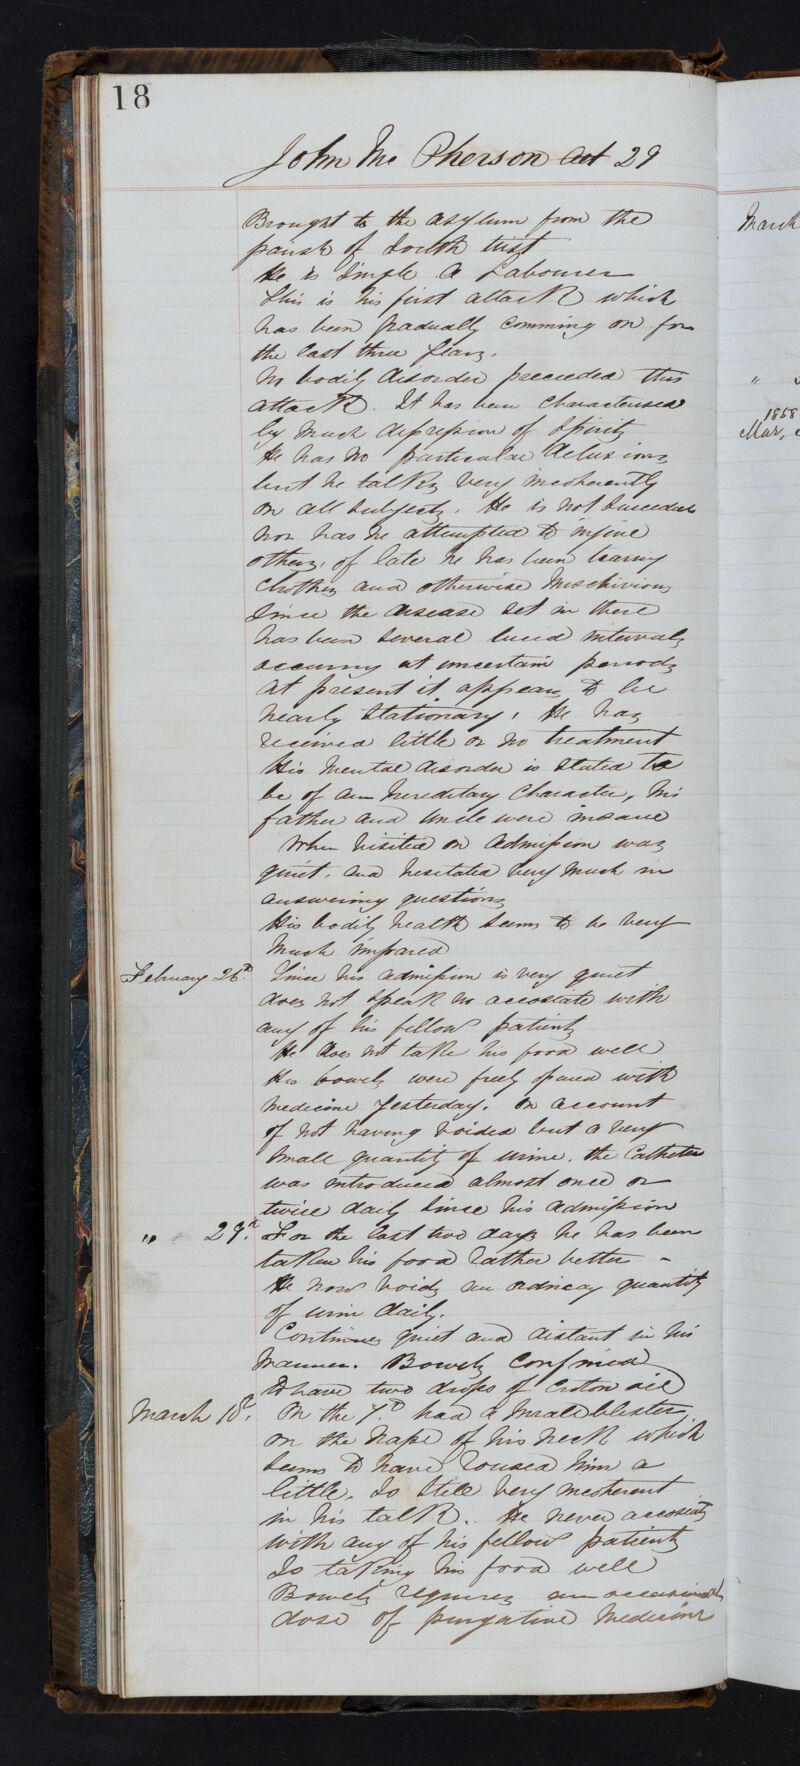 18
John Mc Pherson aet 29
Brought to the asylum from the
parish of South Uist
He is Single a Labourer
This is his first attack which
has been gradually comming on for
the last three years.
No bodily disorder preceeded this
attack. It has been characterised
by much depression of Spirits
He has no particular delusions
but he talks very incoherently
on all subjects. He is not Suicedal
nor has he attempted to injure
others, of late he has been tearing
Clothes and otherwise Mischivious
Since the disease set in there
has been several lucid intervals
occuring at uncertain periods
At present it appears to be
nearly Stationary. He has
received little or no treatment
His Mental disorder is stated to
be of an hereditary Character, his
father and Uncle were insane
When visited on Admission was
quiet, and hesitated very much in
answering questions
His bodily health seems to be very
much impared
February 26th. Since his admission is very quiet
does not speak no accosiate with
any of his fellow patients
He does not take his food well
His bowels were freely opened with
Medicine yesterday. On account
of not having voided but a very
small quantity of urine. the Catheter
was introduced almost once or
twice daily Since his Admission
" 29th. For the last two days he has been
taken his food rather better -
He now voids an ordincay quantity
of urin daily.
Continues quiet and distant in his
manner. Bowels confined
To have two drops of Croton oil
March 10th. On the 7th had a small blister
on the nape of his neck which
seems to have roused him a
little. Is Still very incoherent
in his talk. He never accosiats
with any of his fellow patients
Is taking his food well
Bowels requires an occasional
dose of purgative Medicine
March
"
1858
Mar,